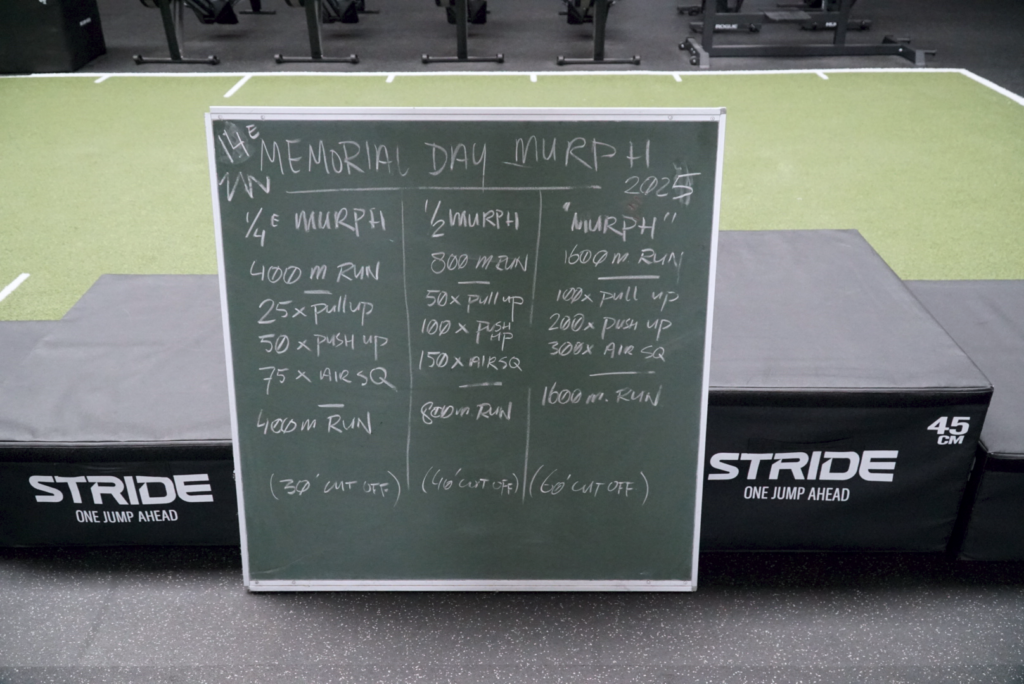 14E
MEMORIAL DAY MURPH
2025
1/4E MURPH
400m RUN
25x pull up
50 x push up
75 x AIR SQ
400m RUN
(30' CUT OFF)
1/2 MURPH
800 m RUN
50x pull up
100 x PUSH
UP
150 x AIRSQ
800m RUN
(40' CUT OFF)
"MURPH"
1600m RUN
100x pull up
200x push up
300x AIR SQ
1600 m. RUN
(60' CUT OFF)
STRIDE
ONE JUMP AHEAD
45
CM
STRIDE
ONE JUMP AHEAD